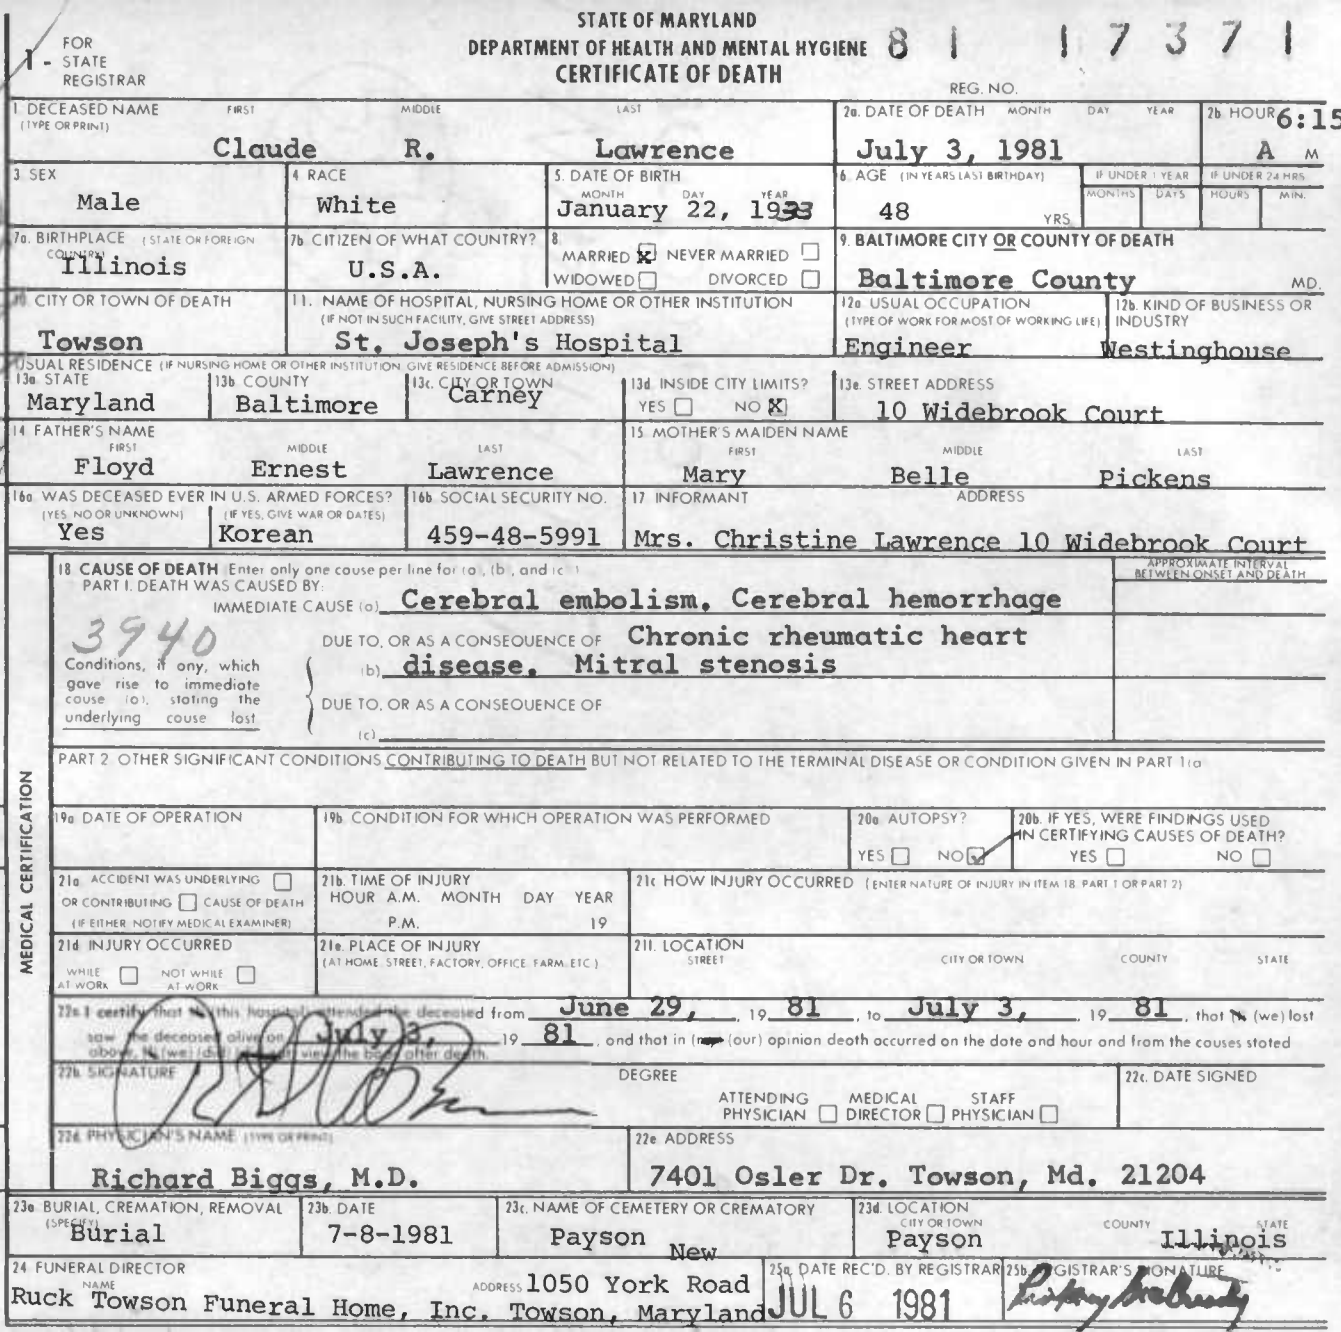 STATE OF MARYLAND
DEPARTMENT OF HEALTH AND MENTAL HYGIENE
CERTIFICATE OF DEATH
1 - FOR STATE REGISTRAR
81 17371
REG. NO.
1. DECEASED NAME (TYPE OR PRINT) FIRST MIDDLE LAST
Claude R. Lawrence
2a. DATE OF DEATH MONTH DAY YEAR
July 3, 1981
2b HOUR 6:15
A M
3 SEX
Male
4 RACE
White
5. DATE OF BIRTH
MONTH DAY YEAR
January 22, 1933
6. AGE (IN YEARS LAST BIRTHDAY)
48 YRS.
IF UNDER 1 YEAR
MONTHS DAYS
IF UNDER 24 HRS
HOURS MIN.
7a. BIRTHPLACE (STATE OR FOREIGN COUNTRY)
Illinois
7b CITIZEN OF WHAT COUNTRY?
U.S.A.
8.
MARRIED X NEVER MARRIED
WIDOWED DIVORCED
9. BALTIMORE CITY OR COUNTY OF DEATH
Baltimore County MD.
10. CITY OR TOWN OF DEATH
Towson
11. NAME OF HOSPITAL, NURSING HOME OR OTHER INSTITUTION
(IF NOT IN SUCH FACILITY, GIVE STREET ADDRESS)
St. Joseph's Hospital
12a USUAL OCCUPATION
(TYPE OF WORK FOR MOST OF WORKING LIFE)
Engineer
12b. KIND OF BUSINESS OR INDUSTRY
Westinghouse
USUAL RESIDENCE (IF NURSING HOME OR OTHER INSTITUTION GIVE RESIDENCE BEFORE ADMISSION)
13a STATE
Maryland
13b COUNTY
Baltimore
13c. CITY OR TOWN
Carney
13d INSIDE CITY LIMITS?
YES NO X
13e. STREET ADDRESS
10 Widebrook Court
14 FATHER'S NAME
FIRST MIDDLE LAST
Floyd Ernest Lawrence
15 MOTHER'S MAIDEN NAME
FIRST MIDDLE LAST
Mary Belle Pickens
16a WAS DECEASED EVER IN U.S. ARMED FORCES?
(YES, NO OR UNKNOWN) (IF YES, GIVE WAR OR DATES)
Yes Korean
16b SOCIAL SECURITY NO.
459-48-5991
17 INFORMANT ADDRESS
Mrs. Christine Lawrence 10 Widebrook Court
MEDICAL CERTIFICATION
18 CAUSE OF DEATH (Enter only one cause per line for (a), (b), and (c))
APPROXIMATE INTERVAL BETWEEN ONSET AND DEATH
PART I. DEATH WAS CAUSED BY:
IMMEDIATE CAUSE (a) Cerebral embolism. Cerebral hemorrhage
3940
DUE TO, OR AS A CONSEQUENCE OF Chronic rheumatic heart
(b) disease. Mitral stenosis
Conditions, if any, which
gave rise to immediate
cause (a), stating the
underlying cause last
DUE TO, OR AS A CONSEQUENCE OF
(c)
PART 2 OTHER SIGNIFICANT CONDITIONS CONTRIBUTING TO DEATH BUT NOT RELATED TO THE TERMINAL DISEASE OR CONDITION GIVEN IN PART 1(a
19a DATE OF OPERATION
19b CONDITION FOR WHICH OPERATION WAS PERFORMED
20a AUTOPSY?
YES NO
20b. IF YES, WERE FINDINGS USED
IN CERTIFYING CAUSES OF DEATH?
YES NO
21a ACCIDENT WAS UNDERLYING
OR CONTRIBUTING CAUSE OF DEATH
(IF EITHER NOTIFY MEDICAL EXAMINER)
21b. TIME OF INJURY
HOUR A.M. MONTH DAY YEAR
P.M. 19
21c HOW INJURY OCCURRED (ENTER NATURE OF INJURY IN ITEM 18 PART 1 OR PART 2)
21d INJURY OCCURRED
WHILE AT WORK NOT WHILE AT WORK
21e. PLACE OF INJURY
(AT HOME, STREET, FACTORY, OFFICE, FARM, ETC.)
21f. LOCATION
STREET CITY OR TOWN COUNTY STATE
22a I certify that (this hospital) attended the deceased from June 29, 19 81, to July 3, 19 81, that (we) last
saw the deceased alive on July 3, 19 81, and that in (our) opinion death occurred on the date and hour and from the causes stated
above, (we) (did) view the body after death.
22b. SIGNATURE
DEGREE
ATTENDING PHYSICIAN MEDICAL DIRECTOR STAFF PHYSICIAN
22c. DATE SIGNED
22d. PHYSICIAN'S NAME (TYPE OR PRINT)
Richard Biggs, M.D.
22e ADDRESS
7401 Osler Dr. Towson, Md. 21204
23a BURIAL, CREMATION, REMOVAL (SPECIFY)
Burial
23b. DATE
7-8-1981
23c. NAME OF CEMETERY OR CREMATORY
Payson New
23d. LOCATION
CITY OR TOWN COUNTY STATE
Payson Illinois
24 FUNERAL DIRECTOR
NAME ADDRESS 1050 York Road
Ruck Towson Funeral Home, Inc. Towson, Maryland
25a. DATE REC'D. BY REGISTRAR
JUL 6 1981
25b. REGISTRAR'S SIGNATURE